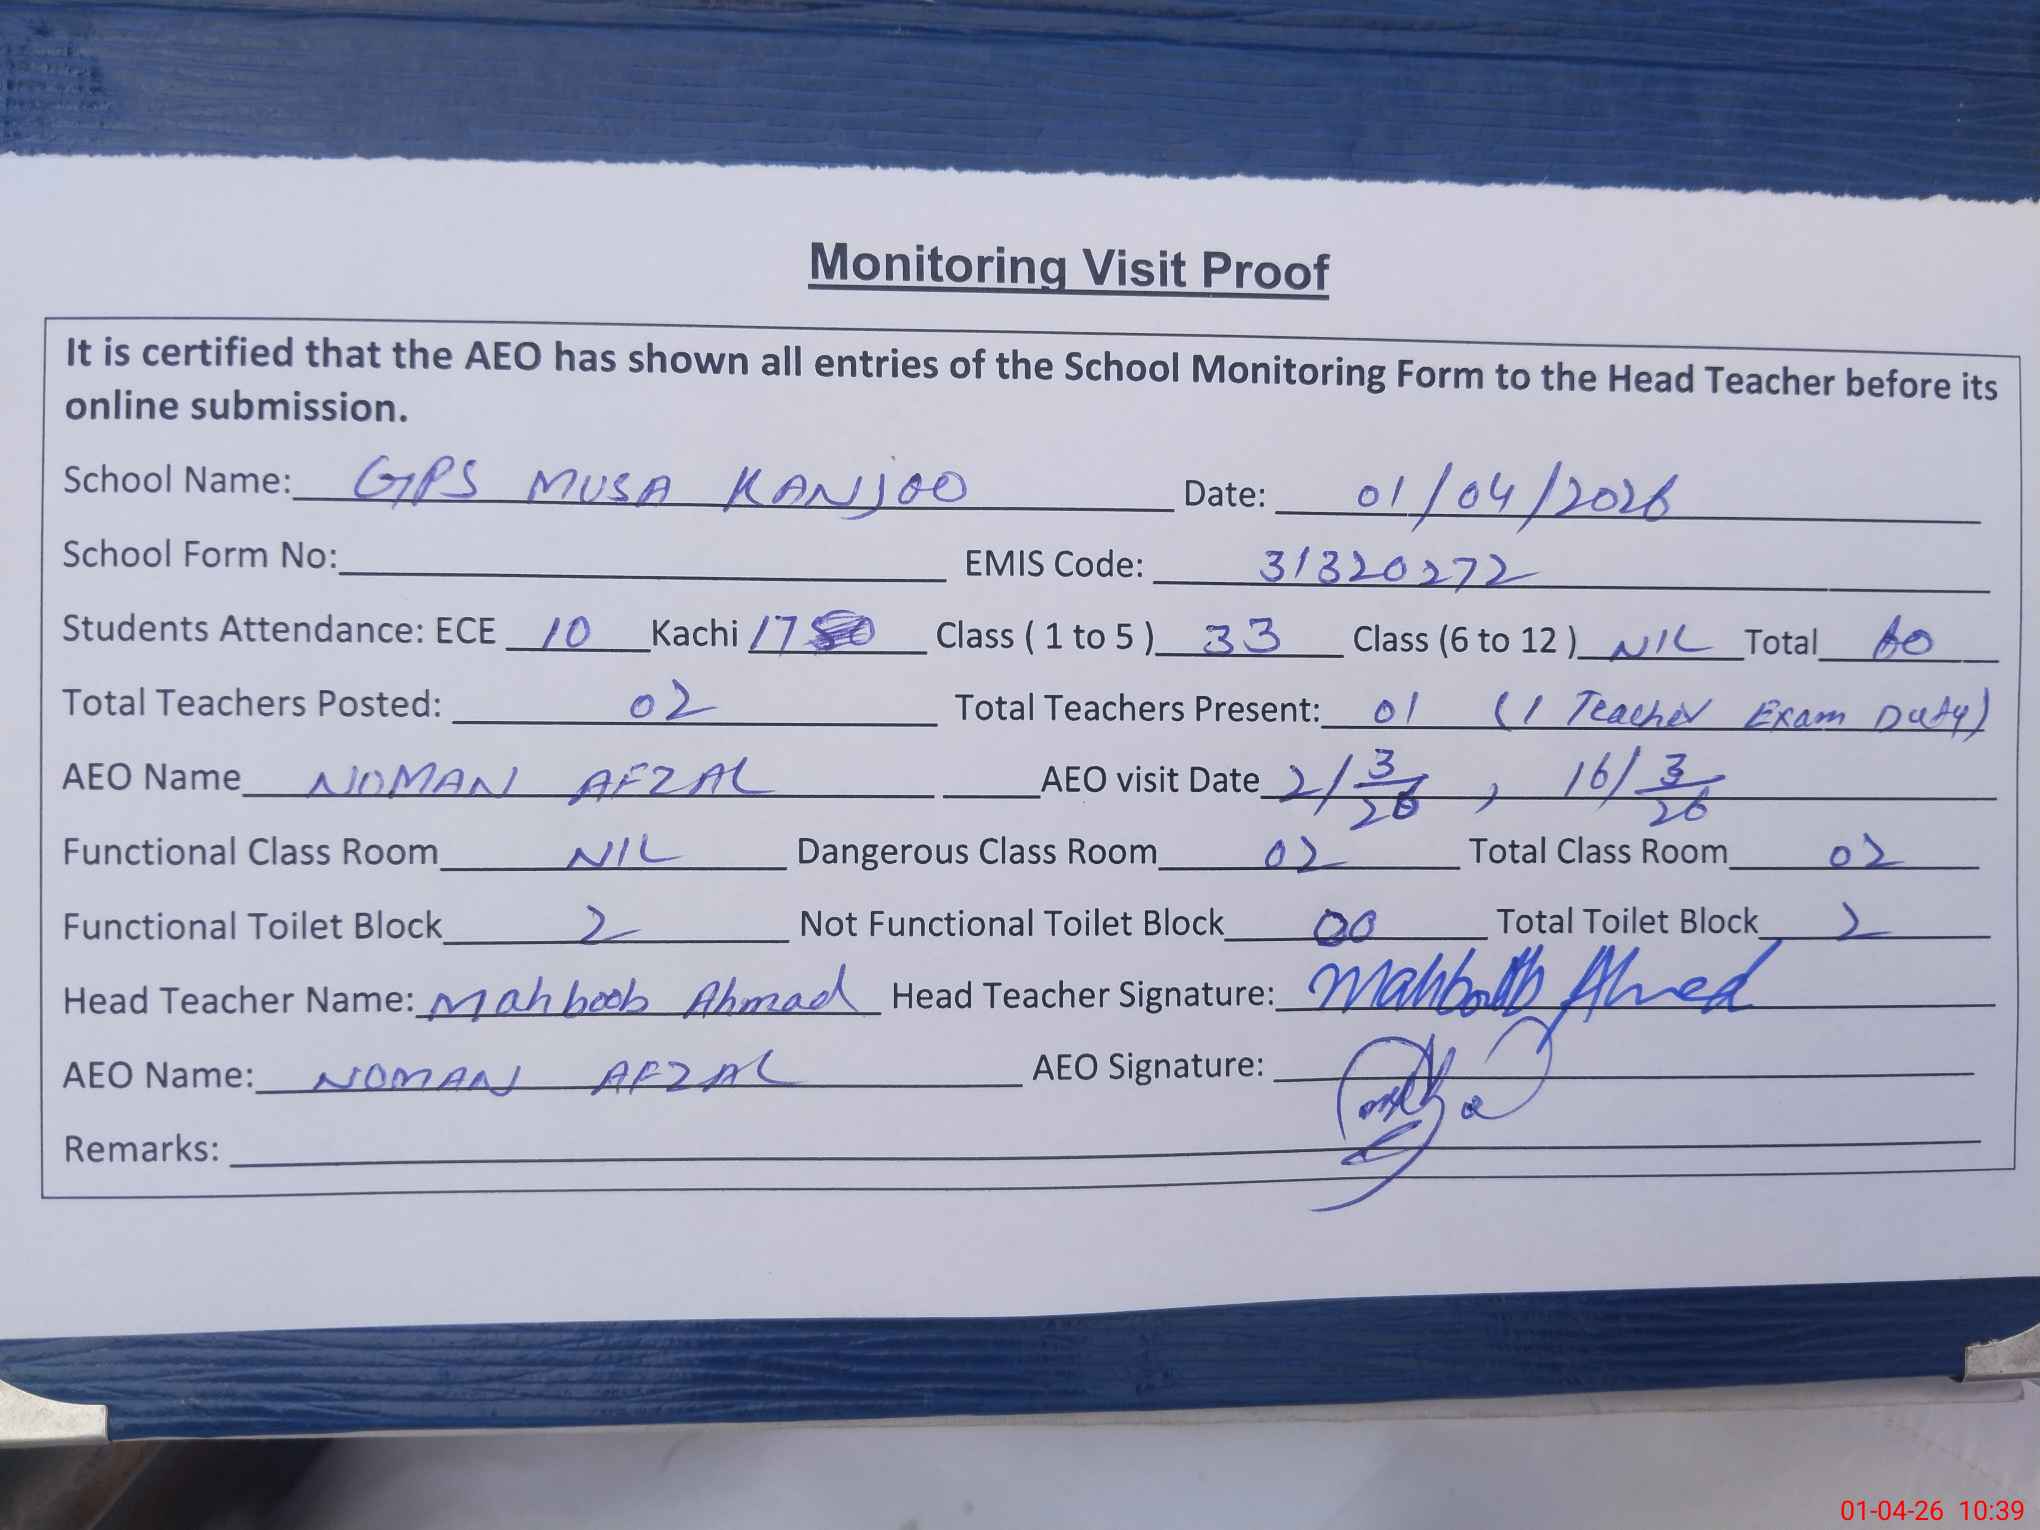 Monitoring Visit Proof
It is certified that the AEO has shown all entries of the School Monitoring Form to the Head Teacher before its
online submission.
School Name: GPS MUSA KANJOO Date: 01/04/2026
School Form No: EMIS Code: 31320272
Students Attendance: ECE 10 Kachi 17 Class ( 1 to 5 ) 33 Class (6 to 12 ) NIL Total 60
Total Teachers Posted: 02 Total Teachers Present: 01 (1 Teacher Exam Duty)
AEO Name NOMAN AFZAL AEO visit Date 2/3/26 , 16/3/26
Functional Class Room NIL Dangerous Class Room 02 Total Class Room 02
Functional Toilet Block 2 Not Functional Toilet Block 00 Total Toilet Block 2
Head Teacher Name: Mahboob Ahmad Head Teacher Signature: Mahboob Ahmed
AEO Name: NOMAN AFZAL AEO Signature:
Remarks:
01-04-26 10:39